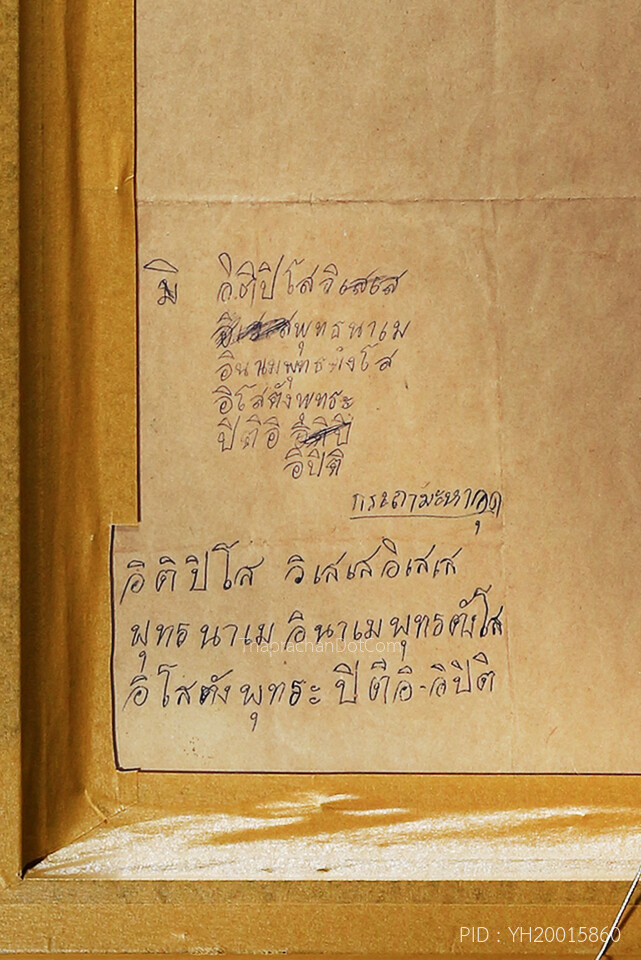 มิ อิติปิโสวิเสเส
พุทธนาเม
อินาเมพุทธตังโส
อิโสตังพุทธะ
ปิตีอิ
อิปิติ
อิติปิโส วิเสเสอิเสเส
พุทธนาเม อินาเมพุทธตังโส
ThaprachanDotCom
อิโสตังพุทธะ ปิตีอิ-อิปิติ
PID : YH20015860